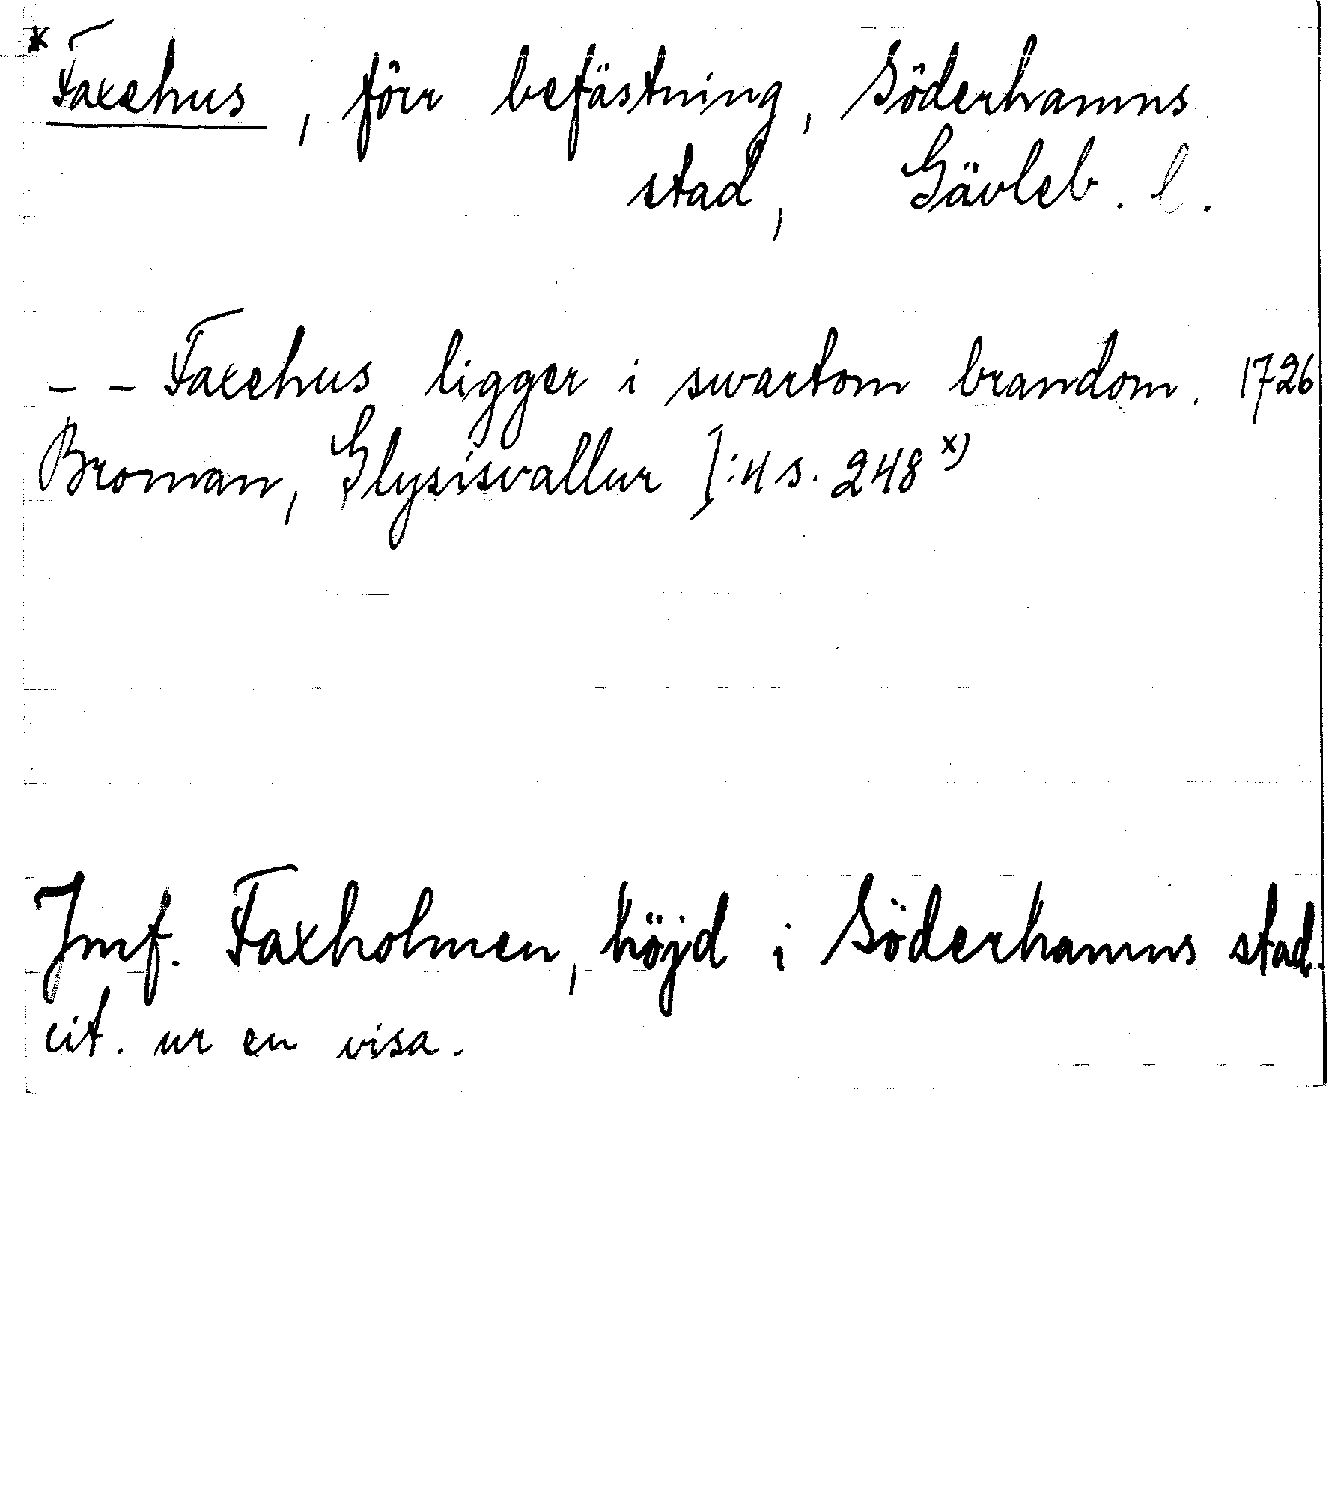 * Faxehus, förr befästning, Söderhamns
stad, Gävleb. l.
– – Faxehus ligger i swartom brandom. 1726
Broman, Glysisvallur I:4 s. 248 x)
Jmf. Faxholmen, höjd i Söderhamns stad.
cit. ur en visa.